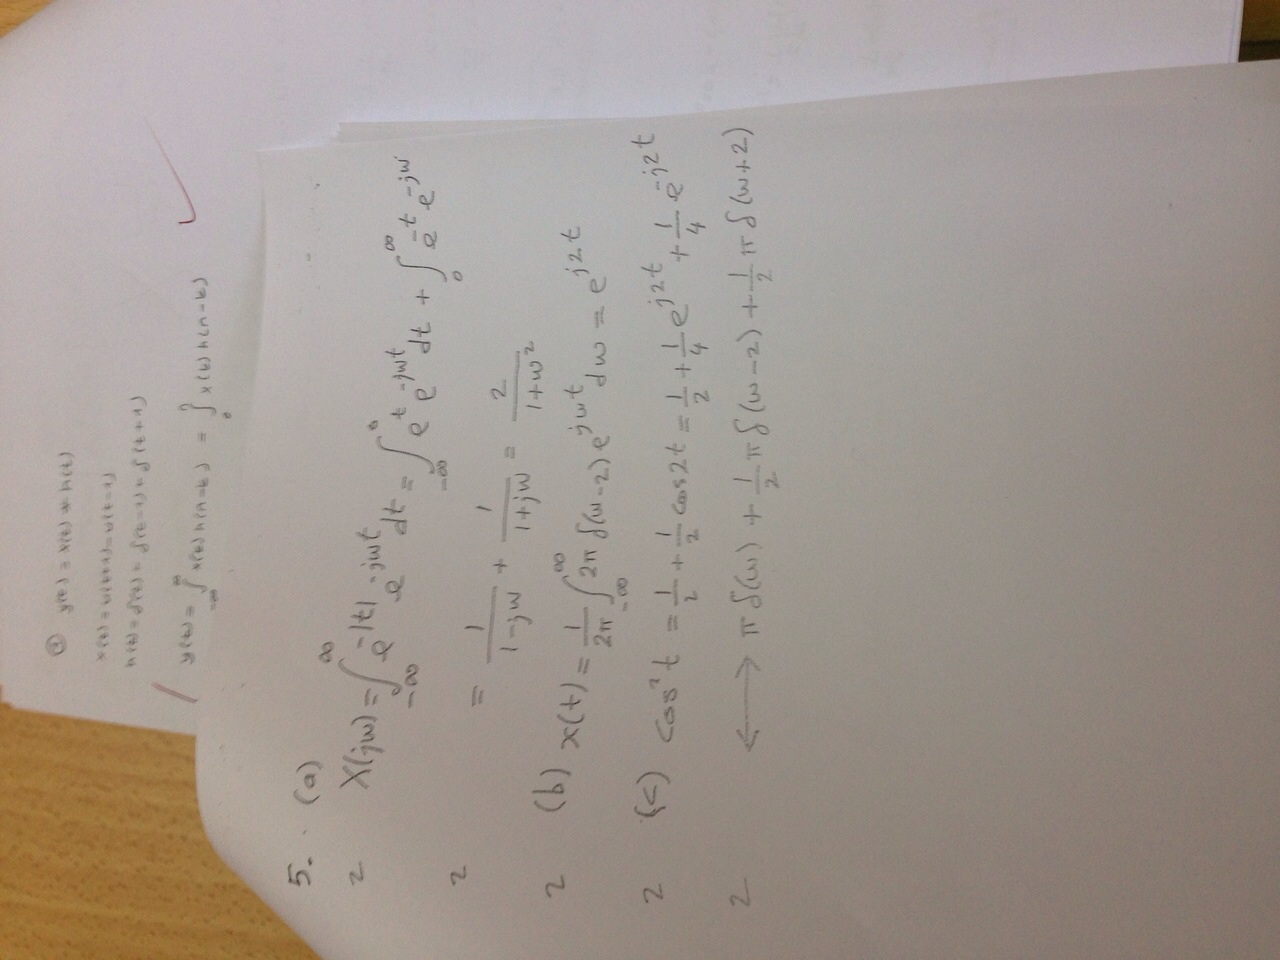 @ y(t) = x(t) * h(t)
x(t) = u(t+1) - u(t-1)
h(t) = δ(t-1) + δ(t+1)
∫_{-∞}^{∞} x(k) h(n-k) = ∫_0 x(k) h(n-k)
5. (a)
2 X(jw) = ∫_{-∞}^{∞} e^{-|t|} e^{-jwt} dt = ∫_{-∞}^{0} e^t e^{-jwt} dt + ∫_0^∞ e^{-t} e^{-jw}
2 = 1/(1-jw) + 1/(1+jw) = 2/(1+w²)
2 (b) x(t) = 1/2π ∫_{-∞}^{∞} 2π δ(w-2) e^{jwt} dw = e^{j2t}
2 (c) cos²t = 1/2 + 1/2 cos2t = 1/2 + 1/4 e^{j2t} + 1/4 e^{-j2t}
2 ⟷ π δ(w) + 1/2 π δ(w-2) + 1/2 π δ(w+2)